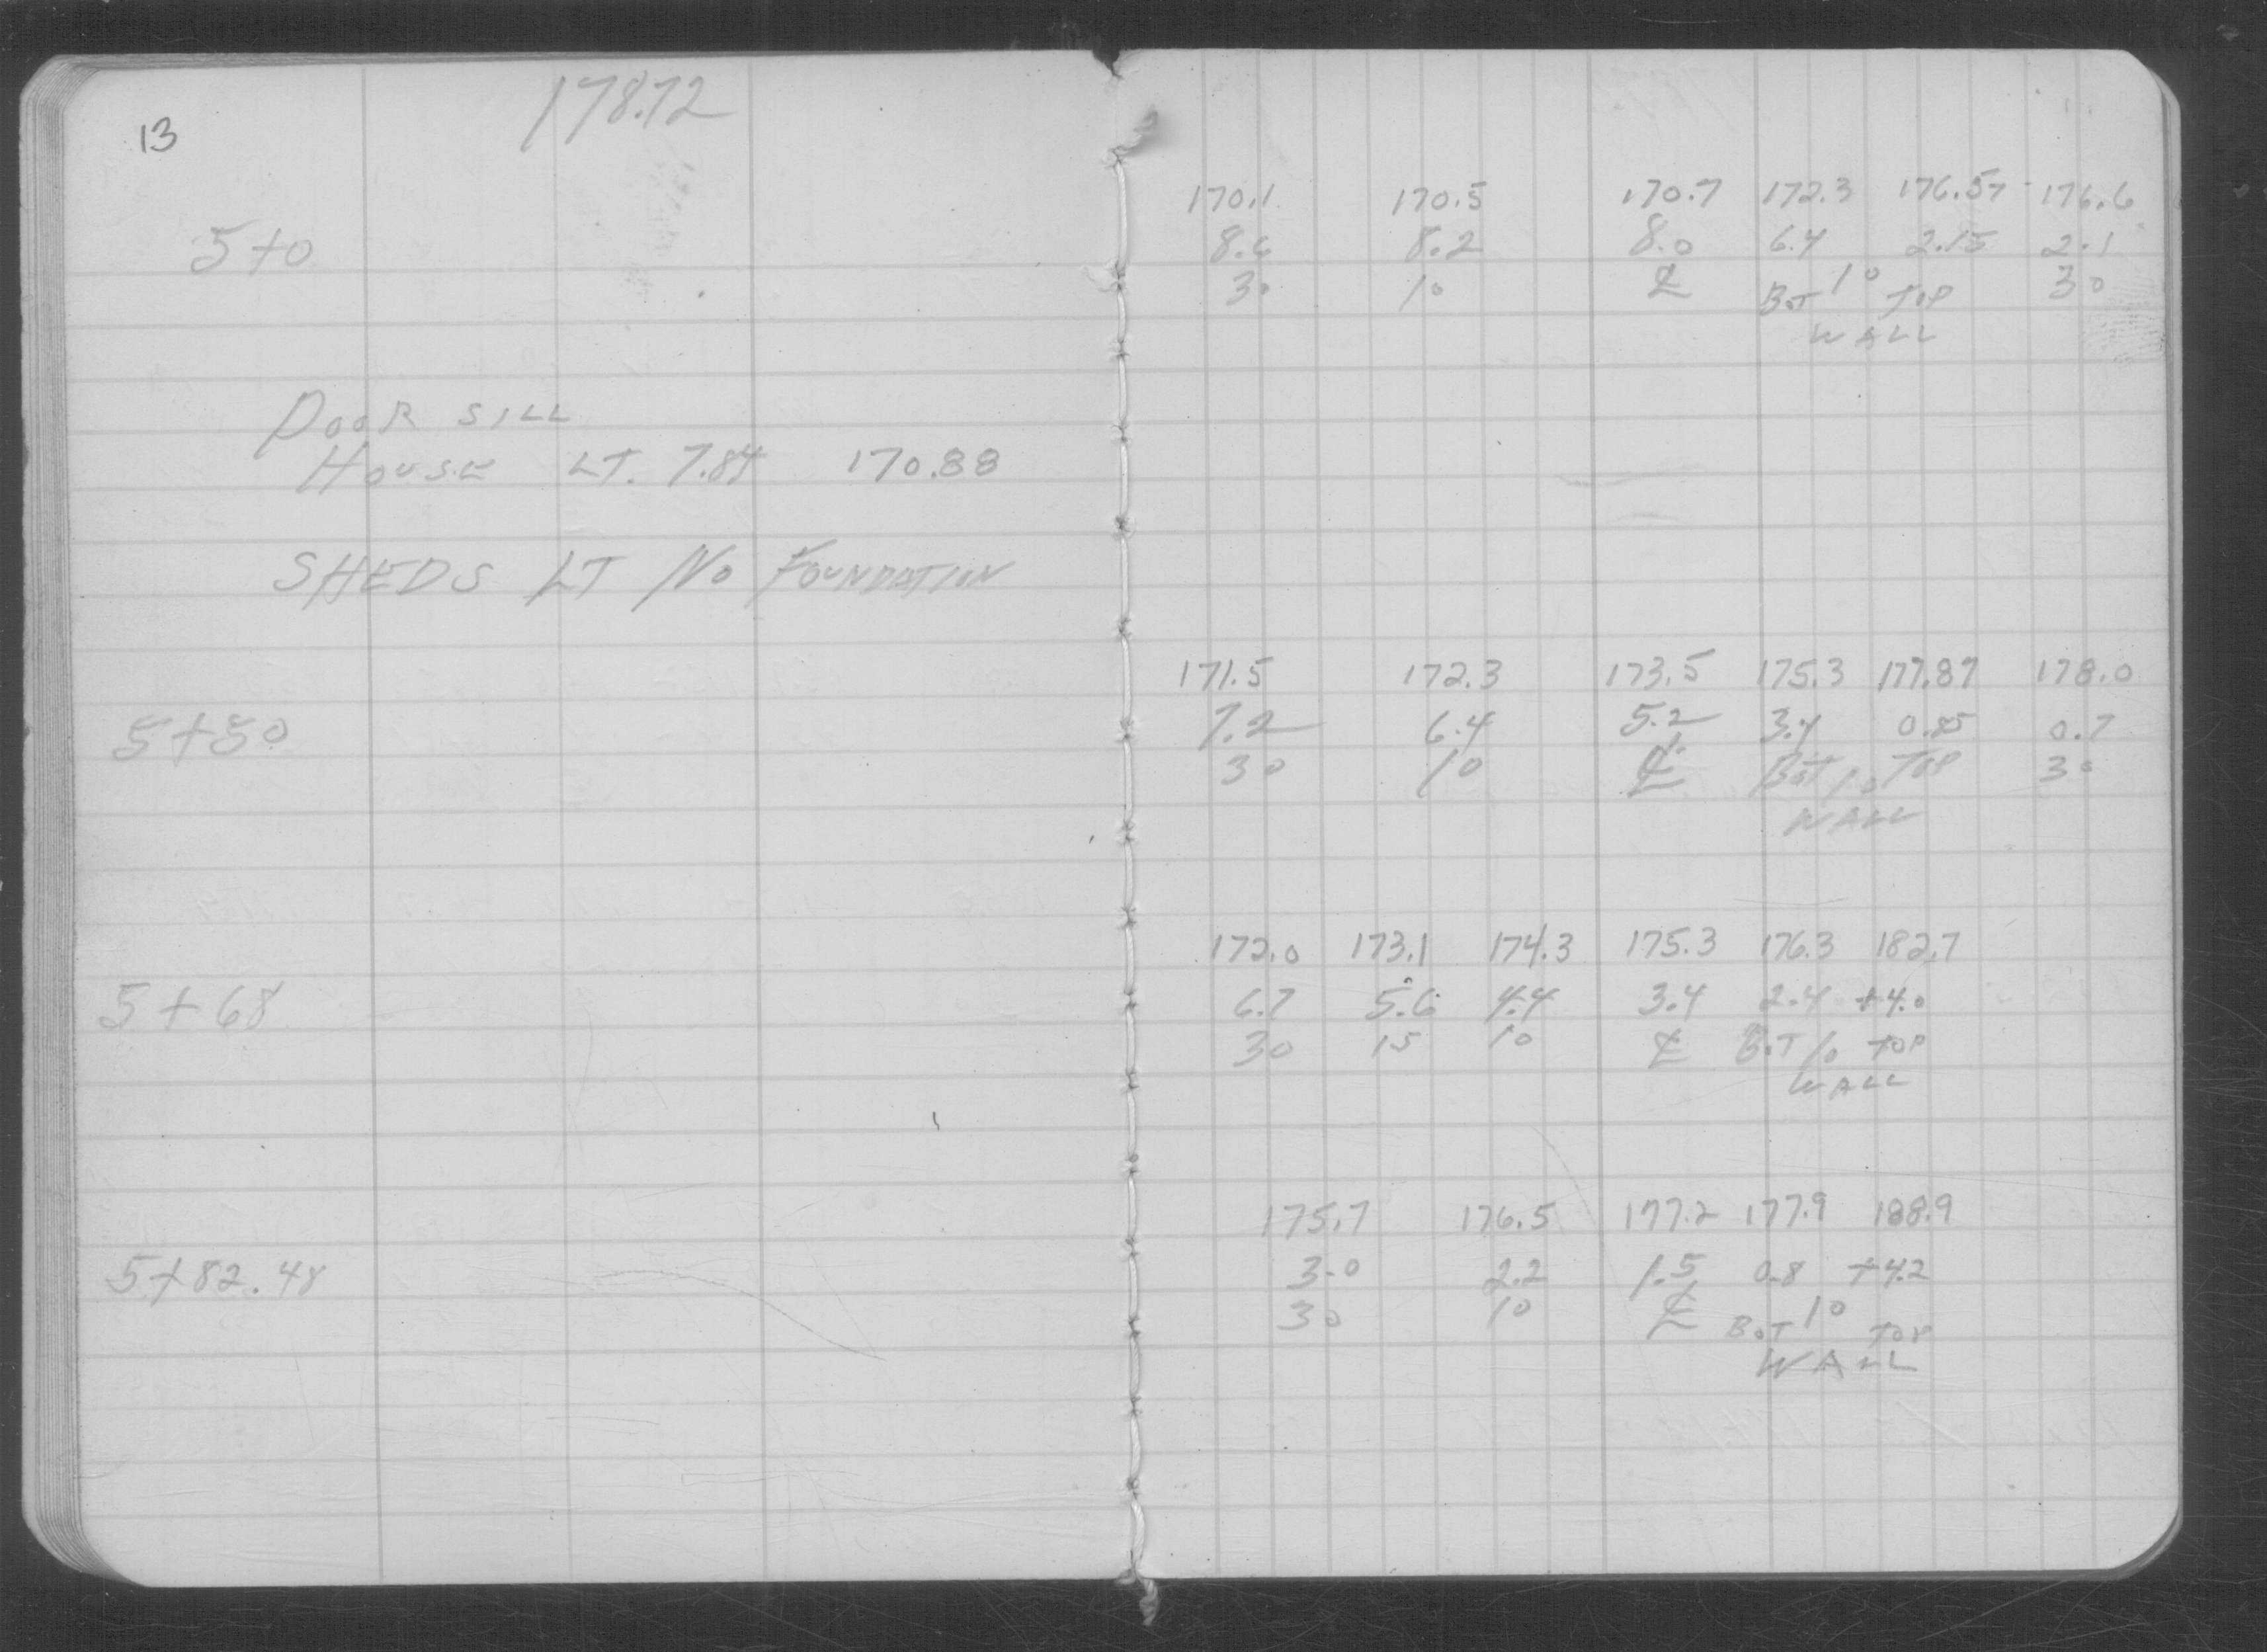 13
178.72
5+0
DOOR SILL
HOUSE LT. 7.84 170.88
SHEDS LT NO FOUNDATION
5+50
5+68
5+82.48
170.1 170.5 170.7 172.3 176.57 176.6
8.6 8.2 8.0 6.4 2.15 2.1
30 10 ℄ BOT 10 TOP 30
WALL
171.5 172.3 173.5 175.3 177.87 178.0
7.2 6.4 5.2 3.4 0.85 0.7
30 10 ℄ BOT 10 TOP 30
WALL
172.0 173.1 174.3 175.3 176.3 182.7
6.7 5.6 4.4 3.4 2.4 +4.0
30 15 10 ℄ BOT 10 TOP
WALL
175.7 176.5 177.2 177.9 188.9
3.0 2.2 1.5 0.8 +4.2
30 10 ℄ BOT 10 TOP
WALL